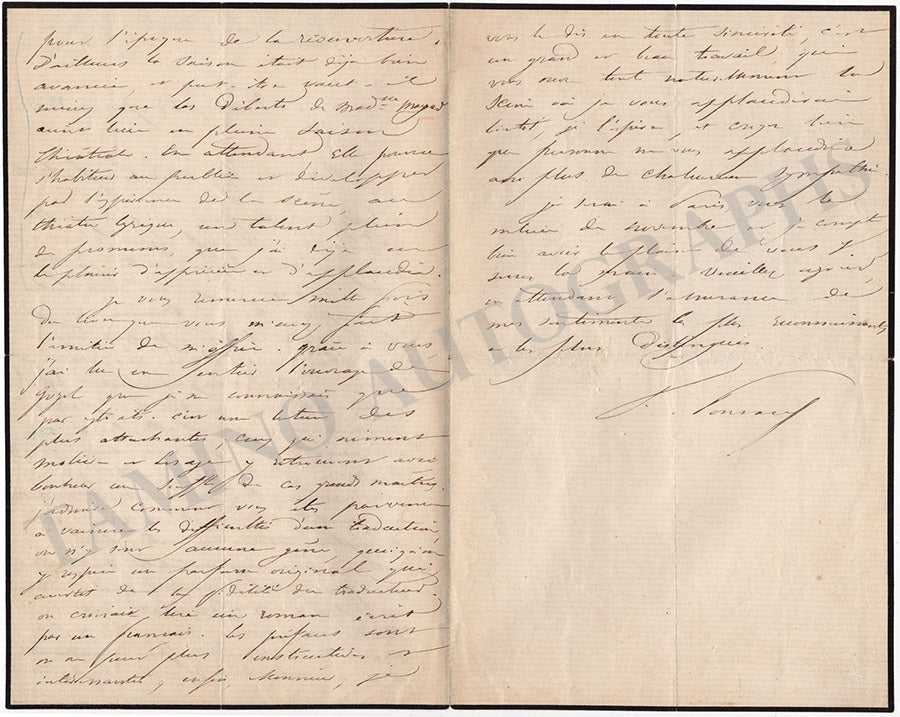 pour l'époque de la réouverture.
D'ailleurs la saison était déjà bien
avancée, et peut-être vaut-il
mieux que les débuts de Madme
aient lieu en pleine saison
théâtrale. En attendant Elle pourra
s'habituer au public et développer
par l'expérience de la scène, au
théâtre lyrique un talent plein
de promesses, que j'ai déjà eu
le plaisir d'apprécier et d'applaudir.
je vous remercie mille fois
Du que vous m'avez fait
l'amitié de m'offrir. grâce à vous
j'ai lu en entier l'ouvrage de
Gogol que je ne connaissais que
par extraits. C'est une lecture des
plus attachantes, ceux qui aiment
Molière et Lesage y retrouvent avec
bonheur un souffle de ces grands maîtres.
j'admire comment vous êtes parvenu
à vaincre les difficultés d'une traduction,
on n'y sent aucune gêne, quoiqu'on
y respire un parfum original qui
avertit de la fidélité du traducteur.
on croirait lire un roman écrit
par un français. les préfaces sont
on ne peut plus instructives et
intéressantes, enfin, Monsieur, je
vous le dis en toute sincérité, c'est
un grand et beau travail, qui
vous tout naturellement la
scène où je vous applaudirai
bientôt, je l'espère, et croyez bien
que personne ne vous applaudira
avec plus de chaleureuse sympathie.
je serai à Paris vers le
milieu de novembre et je compte
bien avoir le plaisir de vous y
serrer la main. Veuillez agréer,
en attendant l'assurance de
mes sentiments les plus reconnaissants
et les plus distingués
F. Ponsard
TAMINO AUTOGRAPHS